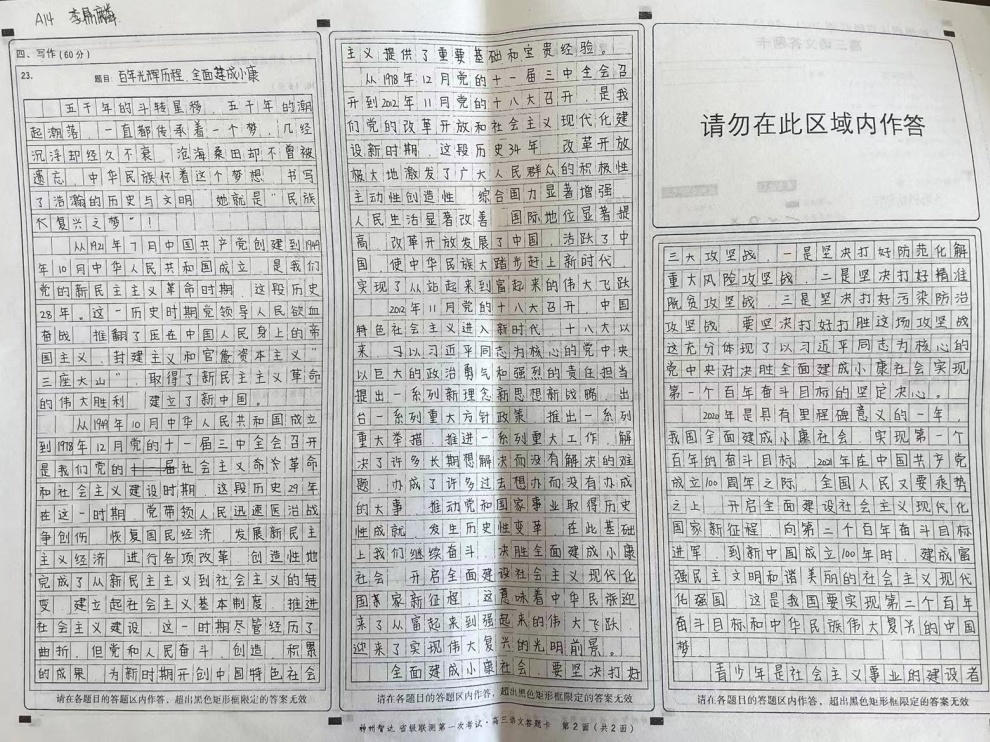 A14 李鼎麟
四、写作(60分)
23. 题目:百年光辉历程,全面建成小康
五千年的斗转星移,五千年的潮
起潮落,一直都传承着一个梦,几经
沉浮却经久不衰,沧海桑田却不曾被
遗忘,中华民族怀着这个梦想,书写
了浩瀚的历史与文明,她就是“民族
伟大复兴之梦”!
从1921年7月中国共产党创建到1949
年10月中华人民共和国成立,是我们
党的新民主主义革命时期,这段历史
28年。这一历史时期党领导人民欲血
奋战,推翻了压在中国人民身上的帝
国主义、封建主义和官僚资本主义“
三座大山”,取得了新民主主义革命
的伟大胜利,建立了新中国。
从1949年10月中华人民共和国成立
到1978年12月党的十一届三中全会召开
是我们党的社会主义革命
和社会主义建设时期,这段历史29年
在这一时期,党带领人民迅速医治战
争创伤,恢复国民经济,发展新民主
主义经济,进行各项改革,创造性地
完成了从新民主主义到社会主义的转
变,建立起社会主义基本制度,推进
社会主义建设,这一时期尽管经历了
曲折,但党和人民奋斗、创造、积累
的成果,为新时期开创中国特色社会
请在各题目的答题区内作答,超出黑色矩形框限定的答案无效
主义提供了重要基础和宝贵经验。
从1978年12月党的十一届三中全会召
开到2012年11月党的十八大召开,是我
们党的改革开放和社会主义现代化建
设新时期,这段历史34年,改革开放
极大地激发了广大人民群众的积极性
主动性创造性,综合国力显著增强,
人民生活显著改善,国际地位显著提
高,改革开放发展了中国,活跃了中
国,使中华民族大踏步赶上新时代,
实现了从站起来到富起来的伟大飞跃
2012年11月党的十八大召开,中国
特色社会主义进入新时代,十八大以
来,以习近平同志为核心的党中央
以巨大的政治勇气和强烈的责任担当
提出一系列新理念新思想新战略,出
台一系列重大方针政策,推出一系列
重大举措,推进一系列重大工作,解
决了许多长期想解决而没有解决的难
题,办成了许多过去想办而没有办成
的大事,推动党和国家事业取得历史
性成就,发生历史性变革,在此基础
上我们继续奋斗,决胜全面建成小康
社会,开启全面建设社会主义现代化
国家新征程,这意味着中华民族迎
来了从富起来到强起来的伟大飞跃,
迎来了实现伟大复兴的光明前景。
全面建成小康社会,要坚决打好
请在各题目的答题区内作答,超出黑色矩形框限定的答案无效
请勿在此区域内作答
三大攻坚战,一是坚决打好防范化解
重大风险攻坚战,二是坚决打好精准
脱贫攻坚战,三是坚决打好污染防治
攻坚战,要坚决打好打胜这场攻坚战
这充分体现了以习近平同志为核心的
党中央对决胜全面建成小康社会实现
第一个百年奋斗目标的坚定决心。
2020年是具有里程碑意义的一年,
我国全面建成小康社会,实现第一个
百年的奋斗目标,2021年在中国共产党
成立100周年之际,全国人民又要乘势
之上,开启全面建设社会主义现代化
国家新征程,向第二个百年奋斗目标
进军,到新中国成立100年时,建成富
强民主文明和谐美丽的社会主义现代
化强国,这是我国要实现第二个百年
奋斗目标和中华民族伟大复兴的中国
梦
青少年是社会主义事业的建设者
请在各题目的答题区内作答,超出黑色矩形框限定的答案无效
神州智达 省级联测第一次考试·高三语文答题卡 第2面(共2面)